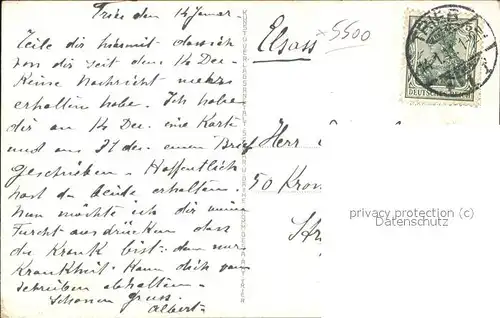 Trier den 14 Januar.
Teile dir hiermit dass ich
von dir seit dem 14 Dec.
Keine Nachricht mehr
erhalten habe. Ich habe
dir am 14 Dec. eine Karte
und am 31 dez. einen Brief
Geschrieben. Hoffentlich
hast du beide erhalten.
Nun möchte ich dir meine
Furcht ausdrücken dass
du Krank bist. denn nur
Krankheit. Kann dich vom
schreiben abhalten.
Schönen Gruss.
Albert.
Elsass
5500
Herr
50 Kron
DEUTSCHES
TRIER
privacy protection (c)
Datenschutz